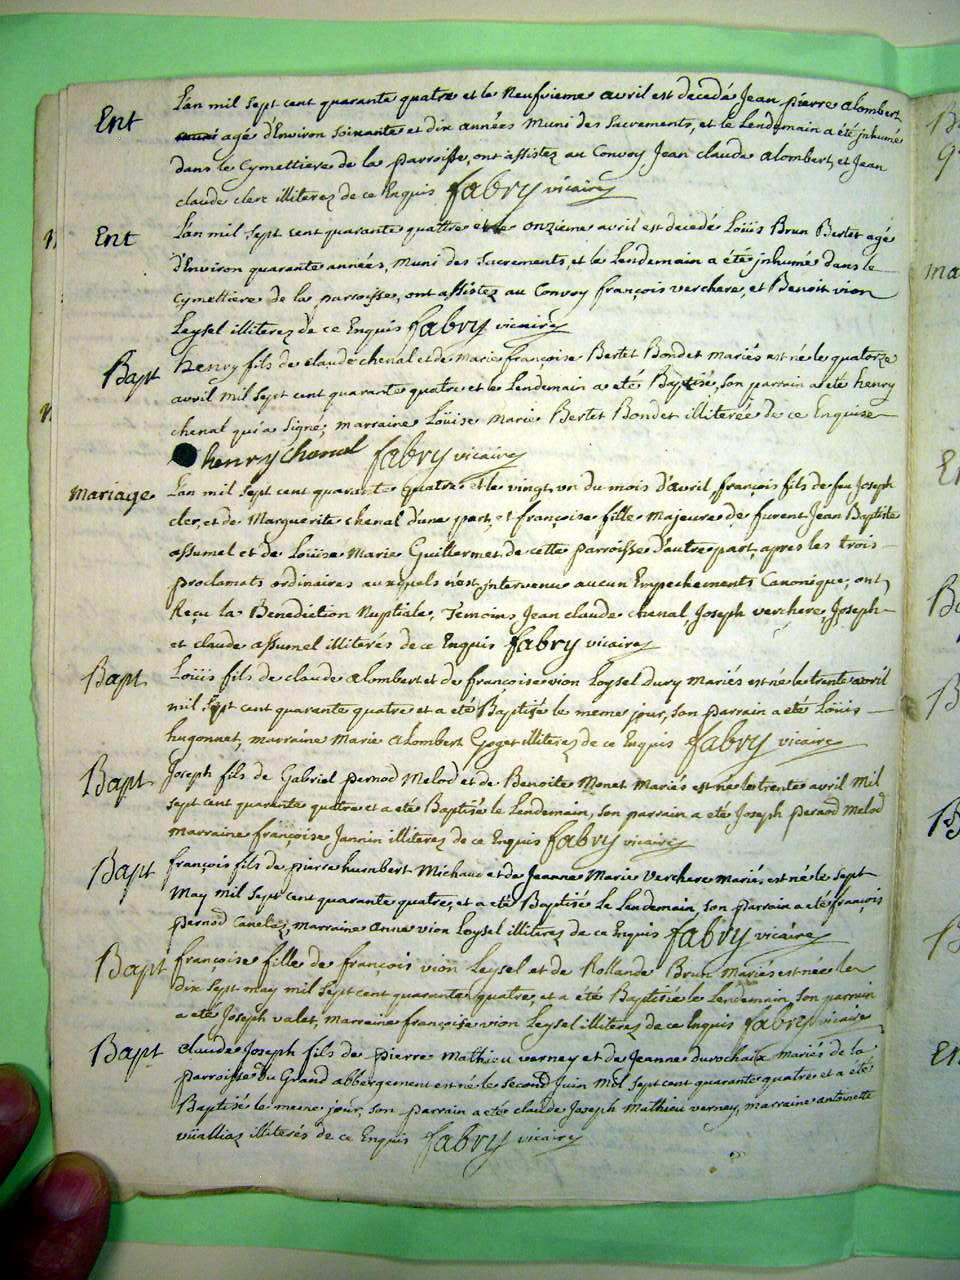 Ent
L'an mil sept cent quarante quatre et le Neufvieme avril est decedé Jean pierre alombert
agé d'Environ soixante et dix années Muni des Sacrements, et le Lendemain a été jnhumé
dans le Cymettiere de la parroisse, ont assistez au Convoy Jean claude alombert, et Jean
claude clerc illiterez de ce Enquis fabry vicaire
Ent
L'an mil sept cent quarante quattre et le onzieme avril est decedé Loüis Brun Bertet agé
d'Environ quarante années, Muni des Sacrements, et le Lendemain a été jnhumé dans le
Cymettiere de la parroisse, ont assistez au Convoy françois verchere, et Benoit vion
Leysel illiterez de ce Enquis fabry vicaire
Bapt
henry fils de claude chenal et de Marie françoise Bertet Bondet mariés est né le quatorze
avril mil sept cent quarante quatre et le Lendemain a eté Baptisé, son parrain a eté henry
chenal qui a signé; marraine Loüise Marie Bertet Bondet illiterée de ce Enquise
henry chenal fabry vicaire
Mariage
L'an mil sept cent quarante quatre et le vingt un du mois d'avril, françois fils de feu Joseph
cler, et de Marguerite chenal d'une part, et françoise fille Majeure de furent Jean Baptiste
assumel et de Loüise Marie Guillermet de cette parroisse d'autre part, apres les trois
proclamats ordinaires auxquels n'est jntervenu aucun Empechements Canonique, ont
Reçu la Benediction Nuptiale, Temoins Jean claude chenal, Joseph verchere, Joseph
et claude assumel illiterés de ce Enquis fabry vicaire
Bapt
Loüis fils de claude alombert et de françoise vion Loysel Dury Mariés est né le trente avril
mil sept cent quarante quatre et a eté Baptisé le meme jour, son parrain a eté Loüis
hugonnet, marraine Marie alombert Goget illiterez de ce Enquis fabry vicaire
Bapt
Joseph fils de Gabriel pernod Melod et de Benoite Monet Mariés est né le trente avril mil
sept cent quarante quatre et a eté Baptisé le Lendemain, son parrain a eté Joseph pernod Melod
marraine françoise Jannin illiterez de ce Enquis fabry vicaire
Bapt
françois fils de pierre humbert Michaud et de Jeanne Marie verchere Mariés est né le sept
May mil sept cent quarante quatre, et a eté Baptisé Le Lendemain, son parrain a eté françois
pernod marraine anne vion Loysel illiterez de ce Enquis fabry vicaire
Bapt
françoise fille de françois vion Leysel et de Rollande Brun Mariés est née le
dix sept may mil sept cent quarante quatre, et a été Baptisée le Lendemain son parrain
a eté Joseph valet, Marraine françoise vion Leysel illiterez de ce Enquis fabry vicaire
Bapt
claude Joseph fils de pierre Mathieu varnay et de Jeanne durochaix mariés de la
parroisse du Grand abbergement est né le second Juin Mil sept cent quarante quatre et a eté
Baptisé le meme jour, son parrain a eté claude Joseph Mathieu vernay, marraine antoinette
illiterés de ce Enquis fabry vicaire